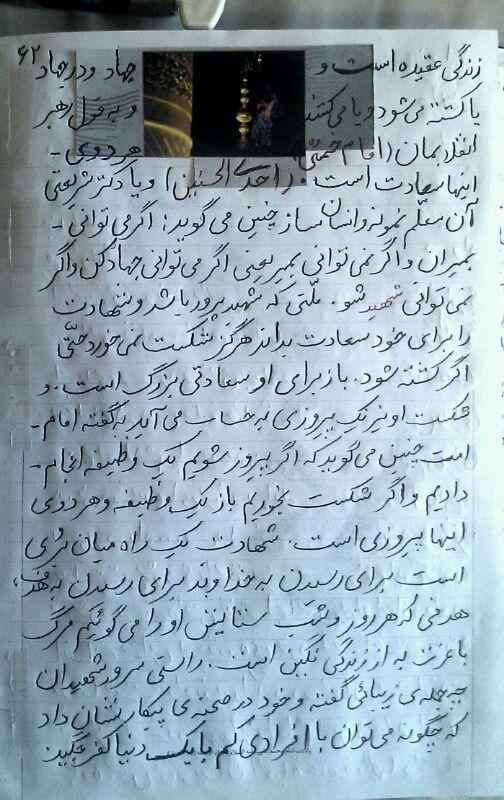 ۶۲
زندگی عقیده است و جهاد و در جهاد
یا کشته می‌شود و یا می‌کشد و به قول رهبر
انقلابمان (امام خمینی) هر دوی -
اینها سعادت است. (احدی الحسنین) و یا دکتر شریعتی
آن معلّم نمونه و انسان ساز چنین می گوید: اگر می توانی -
بمیران و اگر نمی توانی بمیر یعنی اگر می توانی جهاد کن و اگر
نمی توانی شهید شو. ملّتی که شهید پرور باشد و شهادت
را برای خود سعادت بداند هرگز شکست نمی خورد حتّی
اگر کشته شود. باز برای او سعادتی بزرگ است. و
شکست او نیز یک پیروزی به حساب می آید به گفته امام -
امت چنین می گوید که اگر پیروز شویم یک وظیفه انجام -
دادیم و اگر شکست بخوریم باز یک وظیفه و هر دوی
اینها پیروزی است. شهادت یک راه میان بُری
است برای رسیدن به خداوند برای رسیدن به هدف،
هدفی که هر روز و شب ستایش او را می گوئیم مرگ
با عزت به از زندگی ننگین است. راستی سرور شهیدان
چه جمله ی زیبائی گفته و خود در صحنه ی پیکار نشان داد
که چگونه می توان با افرادی کم با یک دنیا کفر جنگید